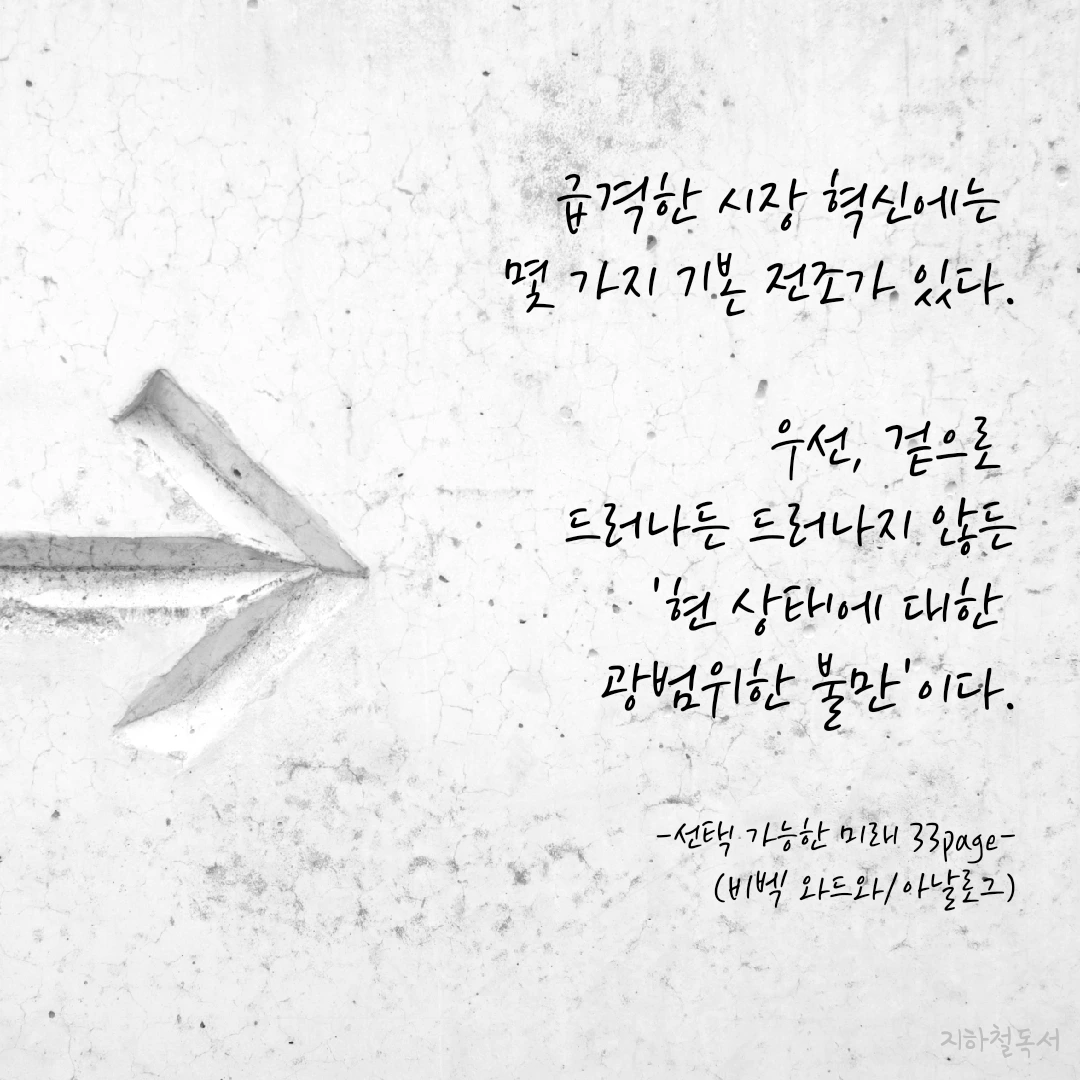 급격한 시장 혁신에는
몇 가지 기본 전조가 있다.
우선, 겉으로
드러나든 드러나지 않든
'현 상태에 대한
광범위한 불만'이다.
-선택 가능한 미래 33page-
(비벡 와드와/아날로그)
지하철독서